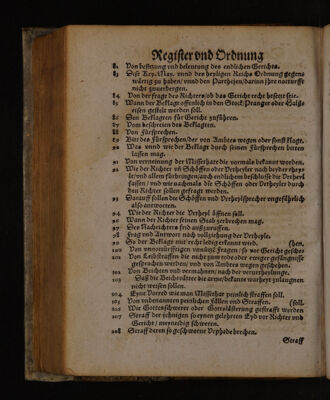 Register vnd Ordnung
82. Von besetzung vnd beleutung des endlichen Gerichts.
83 Diß Key. May. vnnd des heyligen Reichs Ordnung gegen
würtig zu haben/ vnnd den Partheien/ darinn jhre notturfft
nicht zuuerbergen.
84 Von der frage des Richters/ ob das Gericht recht besetzt sei.
85 Wann der Beklagte offentlich in den Stock/ Pranger oder Halß
eisen gestelt werden soll.
86 Den Beklagten für Gericht zuführen.
87 Vom beschreien des Beklagten.
88 Von Fürsprechen.
89 Bitt des Fürsprechen/ der von Ambtes wegen oder sonst klagt.
90 Was vnnd wie der Beklagte durch seinen Fürsprechen bitten
lassen mag.
91 Von verneinung der Missethat die vormals bekannt worden.
92 Wie der Richter vñ Schöffen oder Vrtheyler nach beyder
vnd allem fürbringen/ auch endlichem beschluß die Vrtheyl
fassen/ vnd wie nachmals die Schöffen oder Vrtheyler durch
den Richter sollen gefragt werden.
93 Darauff sollen die Schöffen vnd Vrtheylsprecher vngefährlich
also antworten.
94 Wie der Richter die Vrtheyl öffnen soll.
96 Wann der Richter seinen Stab zerbrechen mag.
97 Des Nachrichters frid außzuruffen.
98 Frag vnd Antwort nach vollziehung der Vrtheyle.
99 So der Beklagt mit recht ledig erkennt wird. (hen.
100 Von vnnotürfftigen vnnütz Fragen/ so vor Gericht gesche
101 Von Leibstraffen die nicht zum tode oder ewiger gefängnisse
gesprochen werden/ vnd von Ambtes wegen geschehen.
102 Von Beichten vnd vermahnen/ nach der verurtheylunge.
103 Daß die Beichtvätter die arme/ bekanter warheyt zulaugnen
nicht weisen sollen.
104 Eynn Vorred wie man Missethat peinlich straffen soll.
105 Von vnbenannten peinlichen fällen vnd Straffen. (soll.
106 Wie Gottschwerer oder Gottslästerung gestrafft werden
107 Straff der jehnigen so eynen gelehrten Eyd vor Richter vnd
Gericht/ meynedig schweren.
108 Straff deren so geschworne Vrphede brechen.
Straff